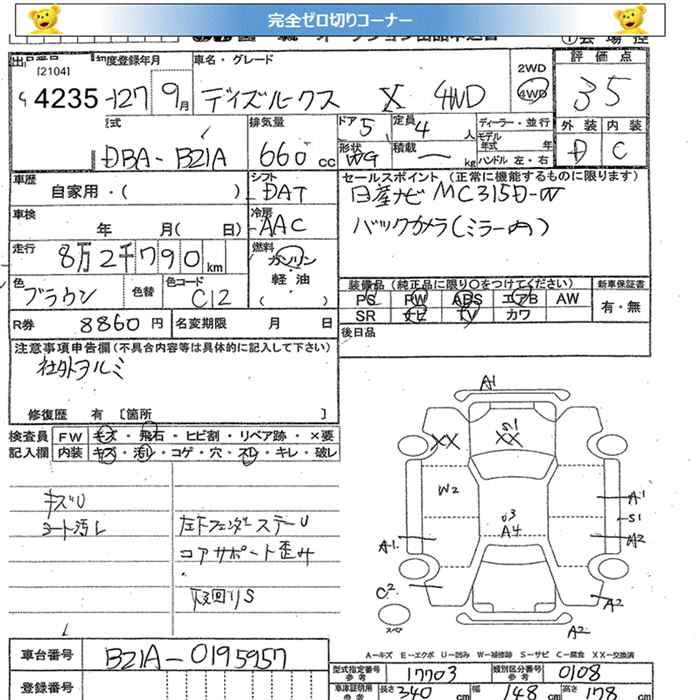 完全ゼロ切りコーナー
出品番号
[2104]
4235
年度登録年月
H27 9月
車名・グレード
デイズルークス X 4WD
2WD
4WD
評価点
3 5
型式
DBA-BZ1A
排気量
660 cc
ドア 5
定員 4 人
形状 WG
積載 ー kg
ディーラー・並行
モデル年式 年
ハンドル 左・右
外装 内装
D C
車歴
自家用・( )
シフト
DAT
セールスポイント (正常に機能するものに限ります)
日産ナビ MC315D-W
バックカメラ(ミラー内)
車検
年 月( 日)
冷房
AAC
走行
8万2千790 km
燃料
ガソリン
軽・油
( )
色
ブラウン
色替
色コード
C12
装備品 (純正品に限り○をつけてください)
新車保証書
PS PW ABS エアB AW
SR ナビ TV カワ
有・無
R券 8860 円
名変期限 月 日
後日品
注意事項申告欄 (不具合内容等は具体的に記入して下さい)
社外アルミ
修復歴 有 〔箇所 〕
検査員記入欄
FW キズ・飛石・ヒビ割・リペア跡・×要
内装 キズ・汚れ・コゲ・穴・スレ・キレ・破レ
キズU
シート汚レ
左下フェンダーステーU
コアサポート歪み
下回りS
A1
S1
XX
XX
W2
U3
A4
A1
S1
A2
A1
C2
A2
A2
スペア
A-キズ E-エクボ U-凹み W-補修跡 S-サビ C-腐食 XX-交換済
車台番号 BZ1A-0195957
登録番号
型式指定番号 参考 17703
類別区分番号 参考 0108
車庫証明用 参考 長さ 340 cm 幅 148 cm 高さ 178 cm